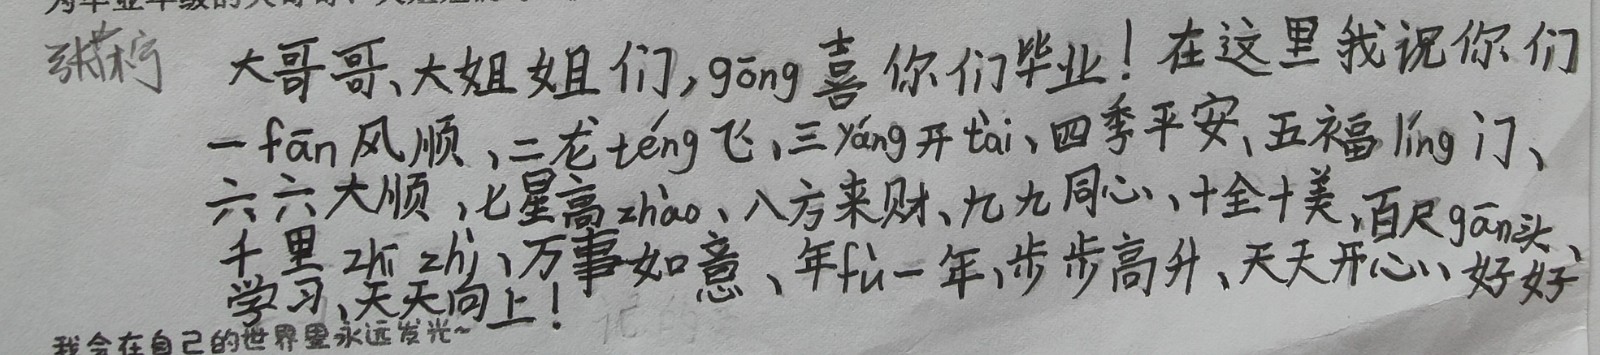 大哥哥、大姐姐们,gōng喜你们毕业!在这里我祝你们
一fān风顺、二龙téng飞、三yáng开tài、四季平安、五福líng门、
六六大顺、七星高zhào、八方来财、九九同心、十全十美、百尺gān头、
千里zhī zhī、万事如意、年fù一年、步步高升、天天开心、好好
学习、天天向上!
我会在自己的世界里永远发光~